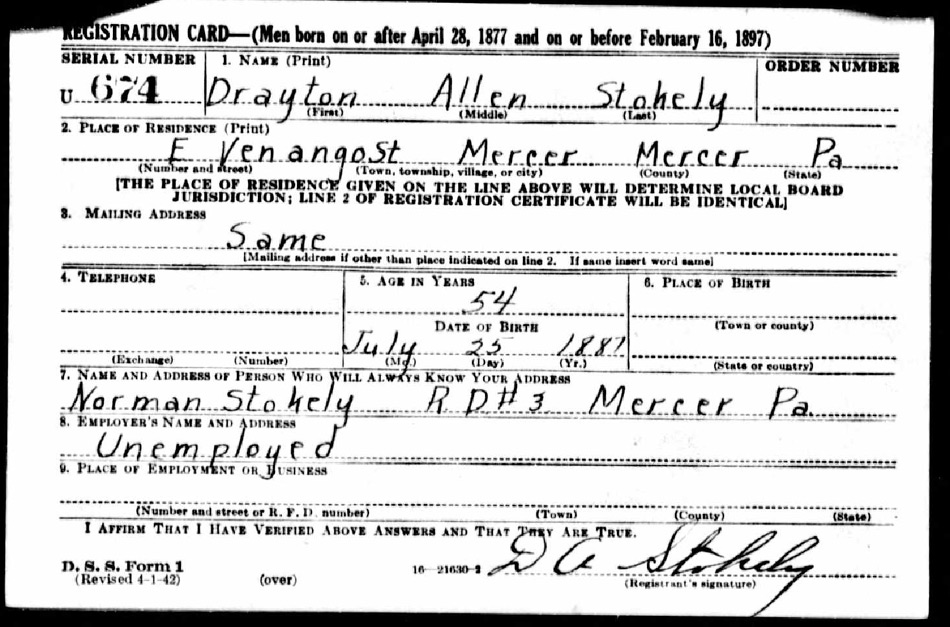 REGISTRATION CARD—(Men born on or after April 28, 1877 and on or before February 16, 1897)
SERIAL NUMBER 1. NAME (Print) ORDER NUMBER
U 674 Drayton Allen Stokely
(First) (Middle) (Last)
2. PLACE OF RESIDENCE (Print)
E Venango St Mercer Mercer Pa
(Number and street) (Town, township, village, or city) (County) (State)
[THE PLACE OF RESIDENCE GIVEN ON THE LINE ABOVE WILL DETERMINE LOCAL BOARD
JURISDICTION; LINE 2 OF REGISTRATION CERTIFICATE WILL BE IDENTICAL]
3. MAILING ADDRESS
Same
[Mailing address if other than place indicated on line 2. If same insert word same]
4. TELEPHONE 5. AGE IN YEARS 6. PLACE OF BIRTH
54
DATE OF BIRTH (Town or county)
July 25 1887
(Exchange) (Number) (Mo.) (Day) (Yr.) (State or country)
7. NAME AND ADDRESS OF PERSON WHO WILL ALWAYS KNOW YOUR ADDRESS
Norman Stokely R D # 3 Mercer Pa.
8. EMPLOYER'S NAME AND ADDRESS
Unemployed
9. PLACE OF EMPLOYMENT OR BUSINESS
(Number and street or R. F. D. number) (Town) (County) (State)
I AFFIRM THAT I HAVE VERIFIED ABOVE ANSWERS AND THAT THEY ARE TRUE.
D. S. S. Form 1 D A Stokely
(Revised 4-1-42) (over) 16—21630-2 (Registrant's signature)